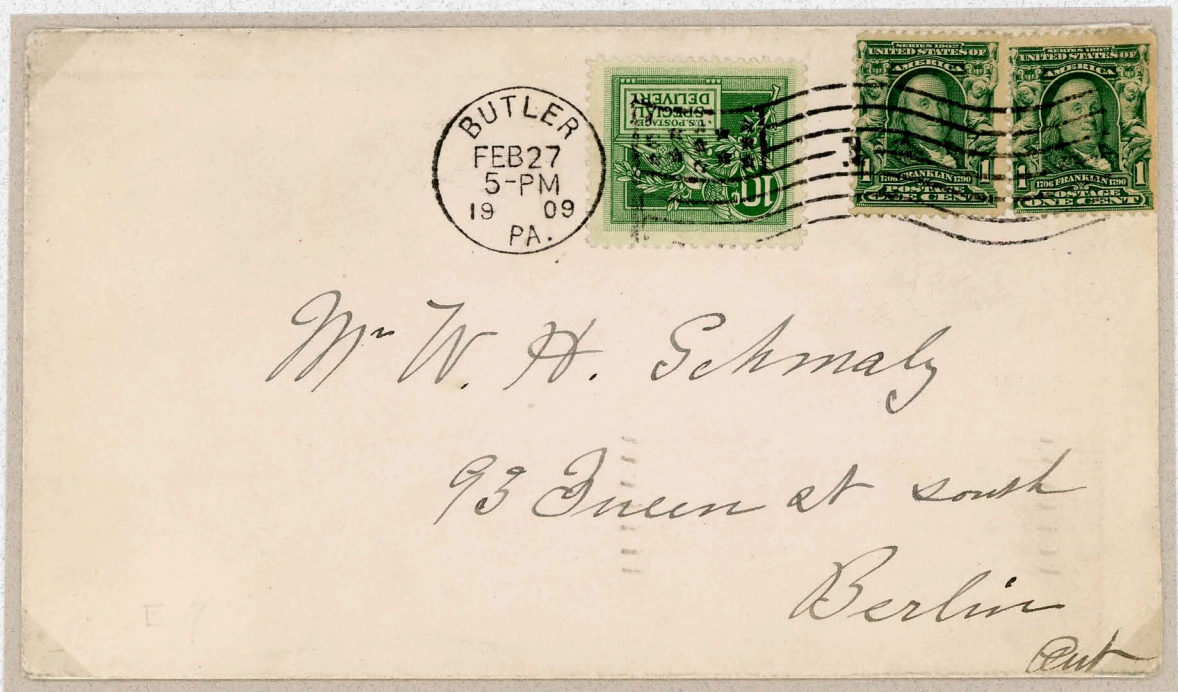 BUTLER
FEB 27
5-PM
19 09
PA.
U.S. POSTAGE
SPECIAL
DELIVERY
10
SERIES 1902
UNITED STATES OF
AMERICA
1 1
1706 FRANKLIN 1790
POSTAGE
ONE CENT
SERIES 1902
UNITED STATES OF
AMERICA
1 1
1706 FRANKLIN 1790
POSTAGE
ONE CENT
Mr W. H. Schmalz
93 Queen st south
Berlin
Ont
E 7